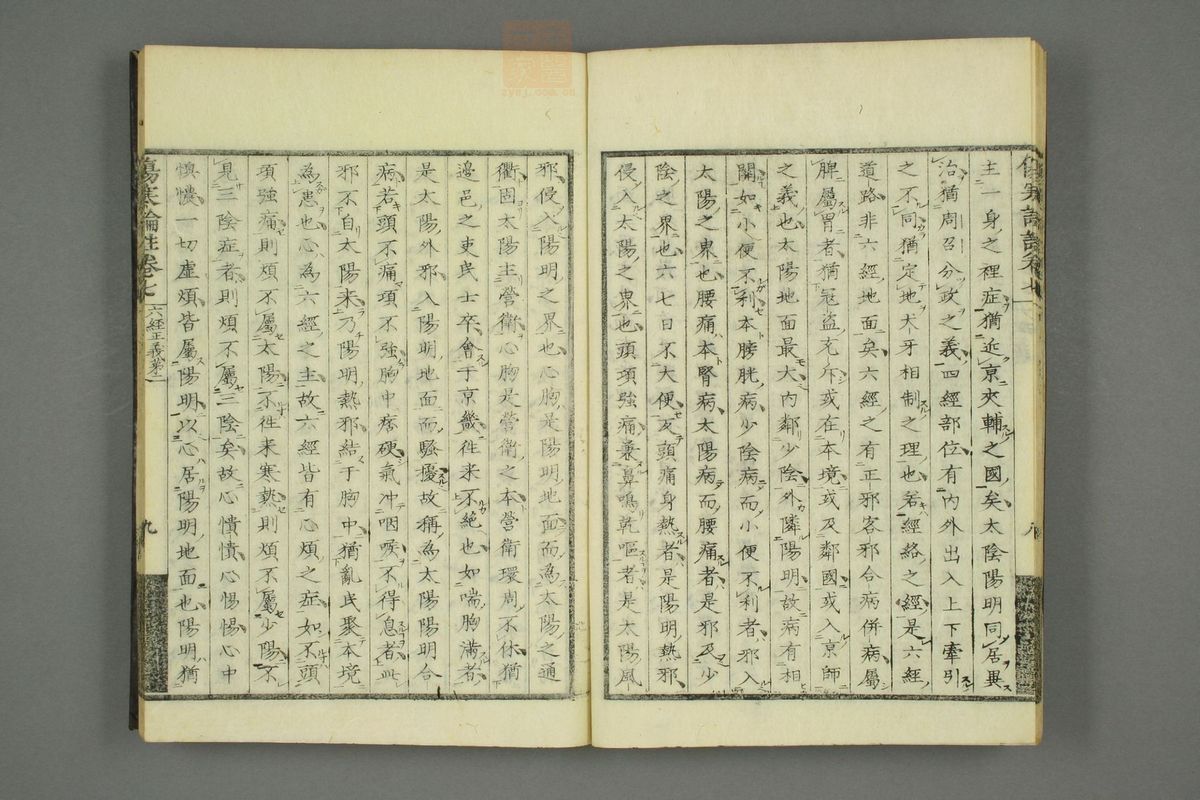 主一身之裡症猶近京夾輔之國矣太陰陽明同居異
治猶周召分政之義四經部位有內外出入上下牽引
之不同猶定地犬牙相制之理也若經絡之經是六經
道路非六經地面矣六經之有正邪客邪合病併病屬
脾屬胃者猶寇盜充斥或在本境或及鄰國或入京師
之義也太陽地面最大內鄰少陰外隣陽明故病有相
關如小便不利本膀胱病少陰病而小便不利者邪入
太陽之界也腰痛本腎病太陽病而腰痛者是邪及少
陰之界也六七日不大便及頭痛身熱者是陽明熱邪
侵入太陽之界也頭項強痛兼鼻鳴乾嘔者是太陽風
邪侵入陽明之界也心胸是陽明地面而為太陽之通
衢因太陽主營衛心胸是營衛之本營衛環周不休猶
邊邑之吏民士卒會于京畿往来不絕也如喘胸滿者
是太陽外邪入陽明地面而騷擾故稱為太陽陽明合
病若頭不痛項不強胸中痞硬氣冲咽喉不得息者此
邪不自太陽来乃陽明熱邪結于胸中猶亂民聚本境
為患也心為六經之主故六經皆有心煩之症如不頭
項強痛則煩不屬太陽不往来寒熱則煩不屬少陽不
見三陰症者則煩不屬三陰矣故心憒憒心惕惕心中
懊憹一切虛煩皆屬陽明以心居陽明地面也陽明猶
傷寒論註卷七 六經正義第二 九